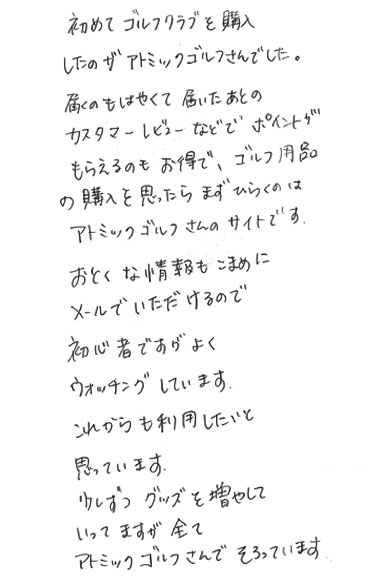 初めて ゴルフクラブを購入
したのが アトミックゴルフさんでした。
届くのもはやくて 届いたあとの
カスタマーレビューなどで ポイントが
もらえるのも お得で、ゴルフ用品
の購入を思ったら まずひらくのは
アトミックゴルフさんのサイトです.
おとくな情報も こまめに
メールでいただけるので
初心者ですが よく
ウォッチングしています.
これからも利用したいと
思っています.
少しずつ グッズを増やして
いってますが 全て
アトミックゴルフさんで そろっています.